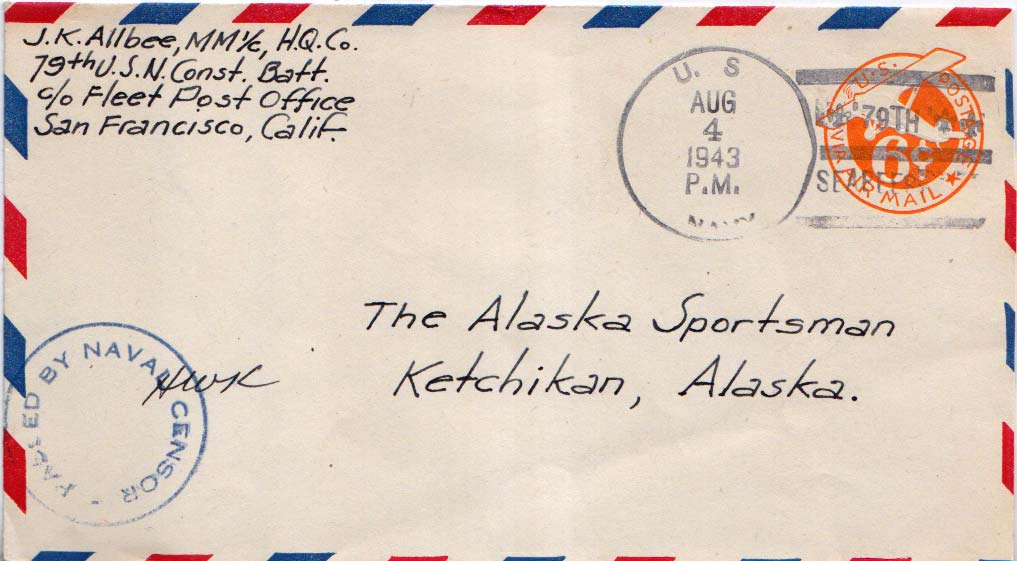 J.K. Allbee, MM 1/c, H.Q. Co.
79th U.S.N. Const. Batt.
c/o Fleet Post Office
San Francisco, Calif.
U. S
AUG
4
1943
P.M.
NAVY
79TH
SEABEES
U.S. POSTAGE
6¢
VIA AIR MAIL
The Alaska Sportsman
Ketchikan, Alaska.
PASSED BY NAVAL CENSOR
HWK